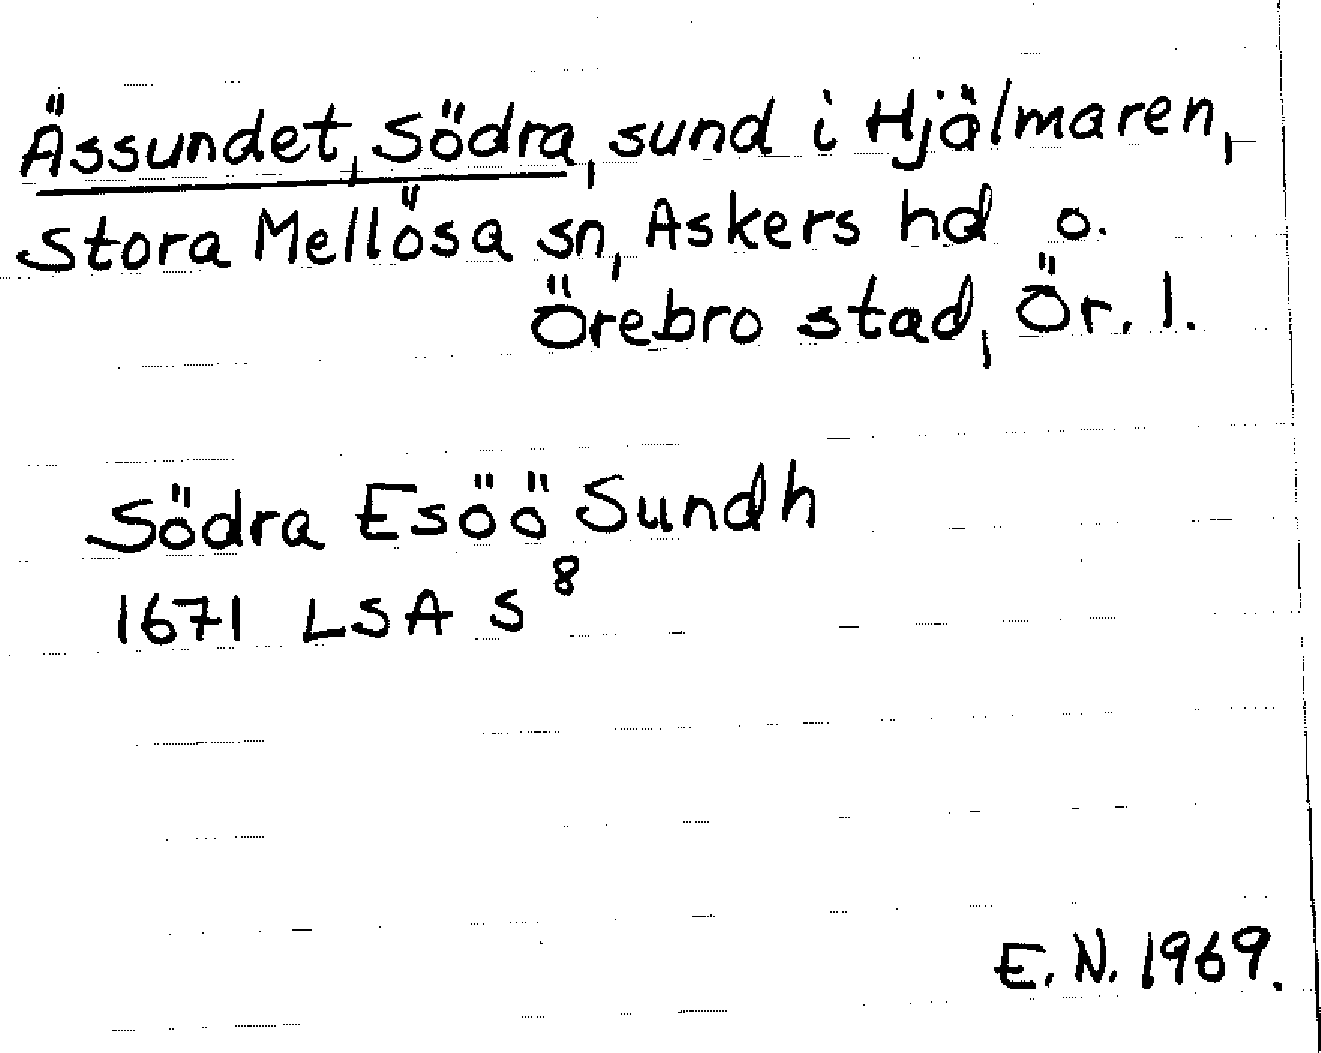 Ässundet, Södra, sund i Hjälmaren,
Stora Mellösa sn, Askers hd o.
Örebro stad, Ör. l.
Södra Esöö Sundh
1671 LSA S⁸
E. N. 1969.